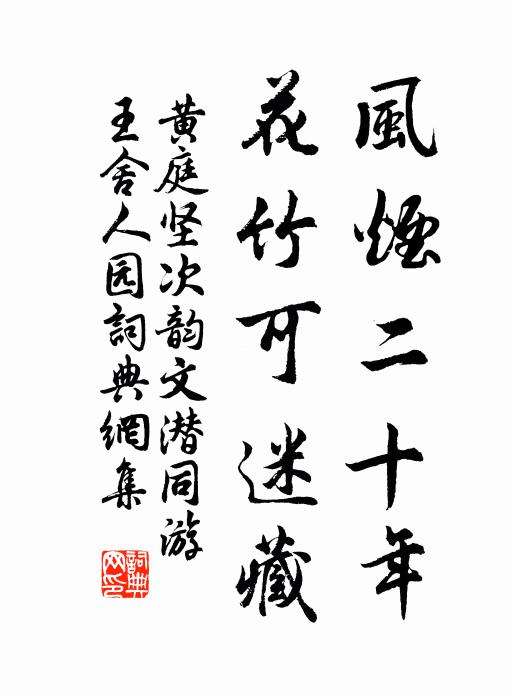 風煙二十年
花竹可迷藏
黄庭坚次韵文潜同游
王舍人园詞典網集
詞典網印